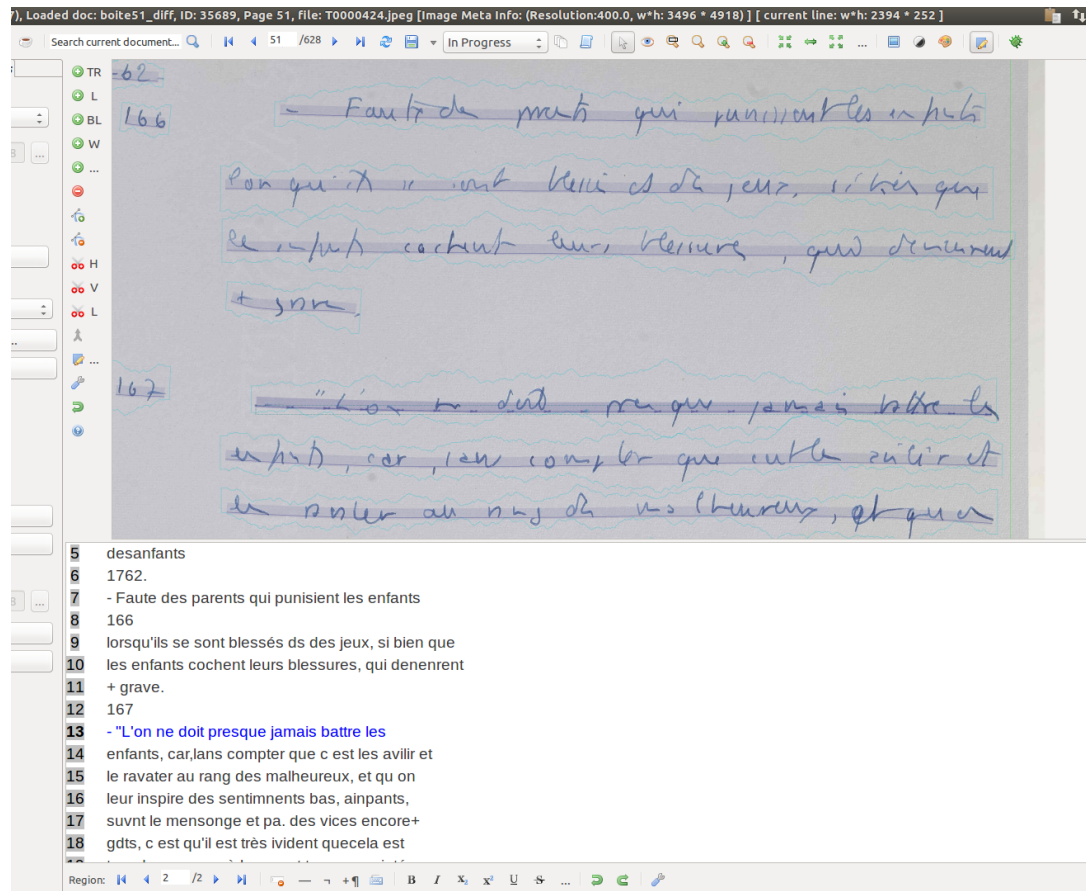 7), Loaded doc: boite51_diff, ID: 35689, Page 51, file: T0000424.jpeg [Image Meta Info: (Resolution:400.0, w*h: 3496 * 4918) ] [ current line: w*h: 2394 * 252 ]
Search current document... 51 /628 In Progress ...
TR
L
BL
W
...
H
V
L
...
8 ...
...
8 ...
-62-
166 - Faute de parents qui punissent les enfants
lorsqu'ils se sont blessés ds des jeux, si bien que
les enfants cachent leurs blessures, qui deviennent
+ grave.
167 - "L'on ne doit presque jamais battre les
enfants, car, sans compter que c'est les avilir et
les ravaler au rang des malheureux, et qu'on
5 desanfants
6 1762.
7 - Faute des parents qui punisient les enfants
8 166
9 lorsqu'ils se sont blessés ds des jeux, si bien que
10 les enfants cochent leurs blessures, qui denenrent
11 + grave.
12 167
13 - "L'on ne doit presque jamais battre les
14 enfants, car,lans compter que c est les avilir et
15 le ravater au rang des malheureux, et qu on
16 leur inspire des sentimnents bas, ainpants,
17 suvnt le mensonge et pa. des vices encore+
18 gdts, c est qu'il est très ivident quecela est
Region: 2 /2 B I X₂ X² U S ...